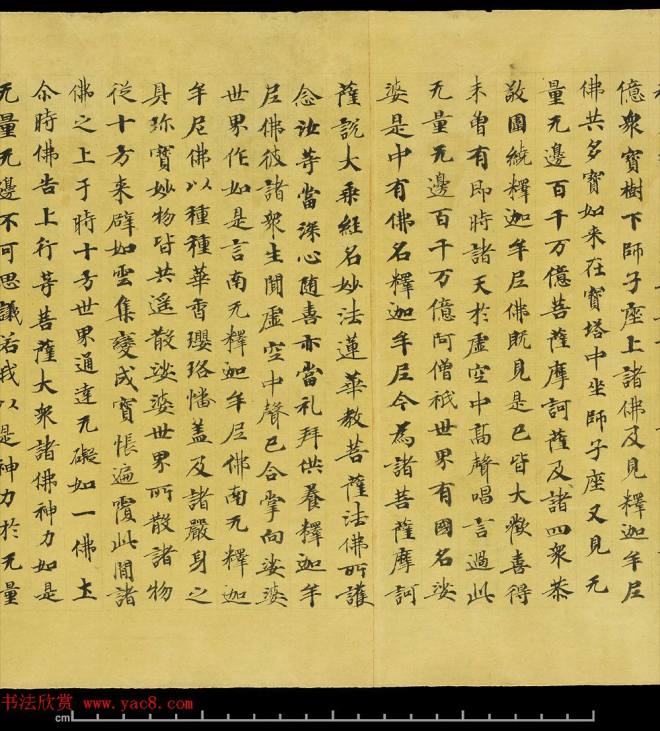 億衆寶樹下師子座上諸佛及見釋迦牟尼
佛共多寶如来在寶塔中坐師子座又見无
量无邊百千万億菩薩摩訶薩及諸四衆恭
敬圍繞釋迦牟尼佛既見是已皆大歡喜得
未曾有即時諸天於虛空中高聲唱言過此
无量无邊百千万億阿僧祇世界有國名娑
婆是中有佛名釋迦牟尼今為諸菩薩摩訶
薩說大乘經名妙法蓮華教菩薩法佛所護
念汝等當深心随喜亦當礼拜供養釋迦牟
尼佛彼諸衆生聞虛空中聲已合掌向娑婆
世界作如是言南无釋迦牟尼佛南无釋迦
牟尼佛以種種華香瓔珞幡盖及諸嚴身之
具珎寶妙物皆共遥散娑婆世界所散諸物
從十方来辟如雲集變成寶帳遍覆此間諸
佛之上于時十方世界通達无礙如一佛土
尒時佛告上行等菩薩大衆諸佛神力如是
无量无邊不可思議若我以是神力於无量
书法欣赏 www.yac8.com
cm